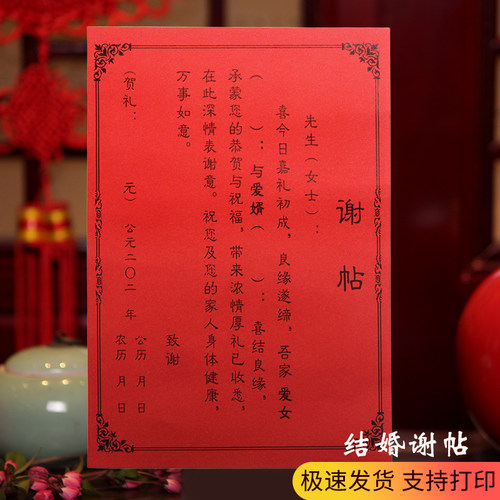 谢帖
先生(女士)：
喜今日嘉礼初成，良缘遂缔，吾家爱女
(　　)：与爱婿(　　)：喜结良缘，
承蒙您的恭贺与祝福，带来浓情厚礼已收悉，
在此深情表谢意。祝您及您的家人身体健康，
万事如意。
致谢
(贺礼：　　元)公元二〇二 年
公历 月 日
农历 月 日
结婚谢帖
极速发货 支持打印